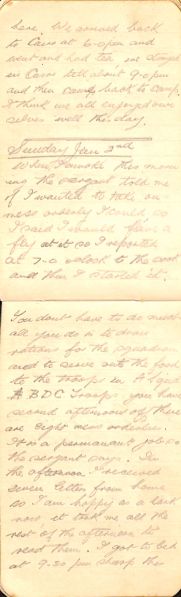 here. We arrived back
to Cairo at 6-0 pm and
went and had tea, we stayed
in Cairo till about 9-0 pm
and then came back to camp.
I think we all enjoyed our
selves well the day.
Sunday Jan 2nd
When I awoke this morn
ing the sergant told me
if I wanted to take on
mess orderly I could, so
I said I would have a
fly at it so I reported
at 7-0 oclock to the cook
and then I started it.
You dont have to do much
all you do is to draw
rations for the squadron
and to serve out the food
to the troops in A Squad
A B D C Troops you have
second afternoons off there
are eight mess orderlies.
It is a permanent job so
the sergant says. In
the afternoon I received
seven letters from home
so I am happy as a lark
now it took me all the
rest of the afternoon to
read them. I got to bed
at 9-30 pm sharp then